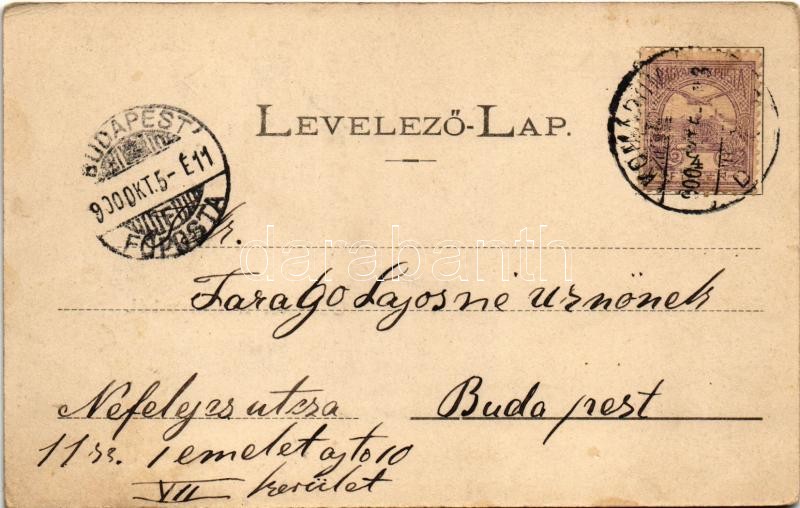 LEVELEZŐ-LAP.
BUDAPEST
900 OKT. 5 - É 11
FŐPOSTA
KOMÁROM
MAGYAR KIR. POSTA
darabanth
Faragó Lajosné Urnőnek
Nefelejcs utcza
Buda pest
11 sz. 1 emelet ajto 10
VII kerület